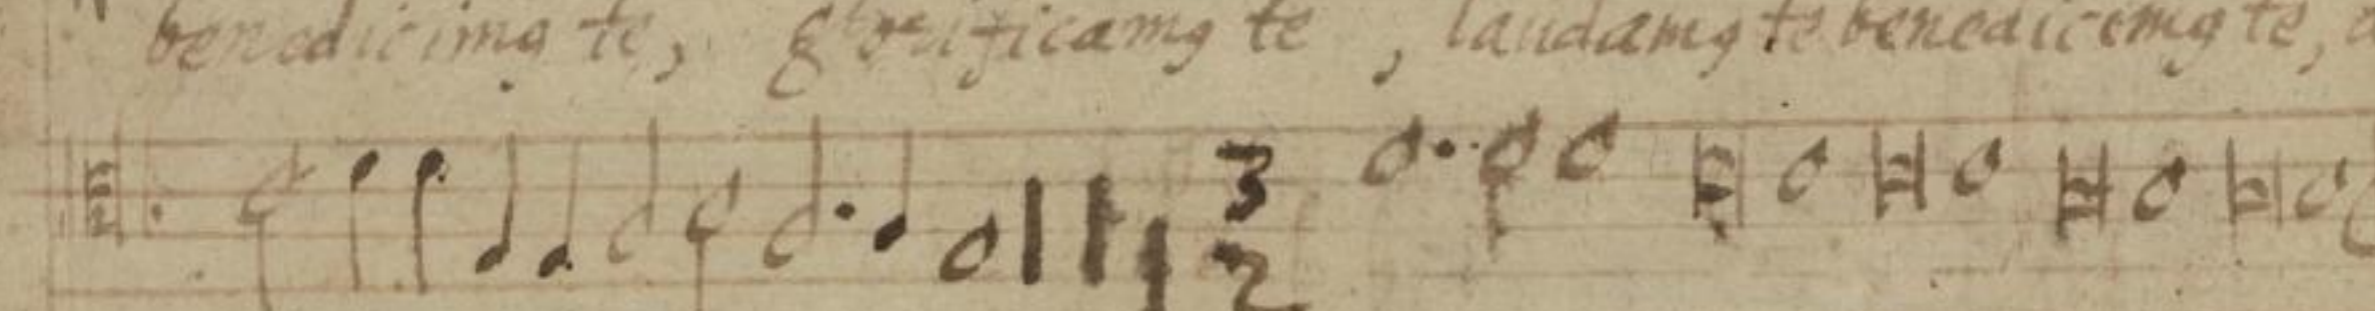 benedicimꝯ te, glorificamꝯ te, laudamꝯ te benedicimꝯ te,
3
2